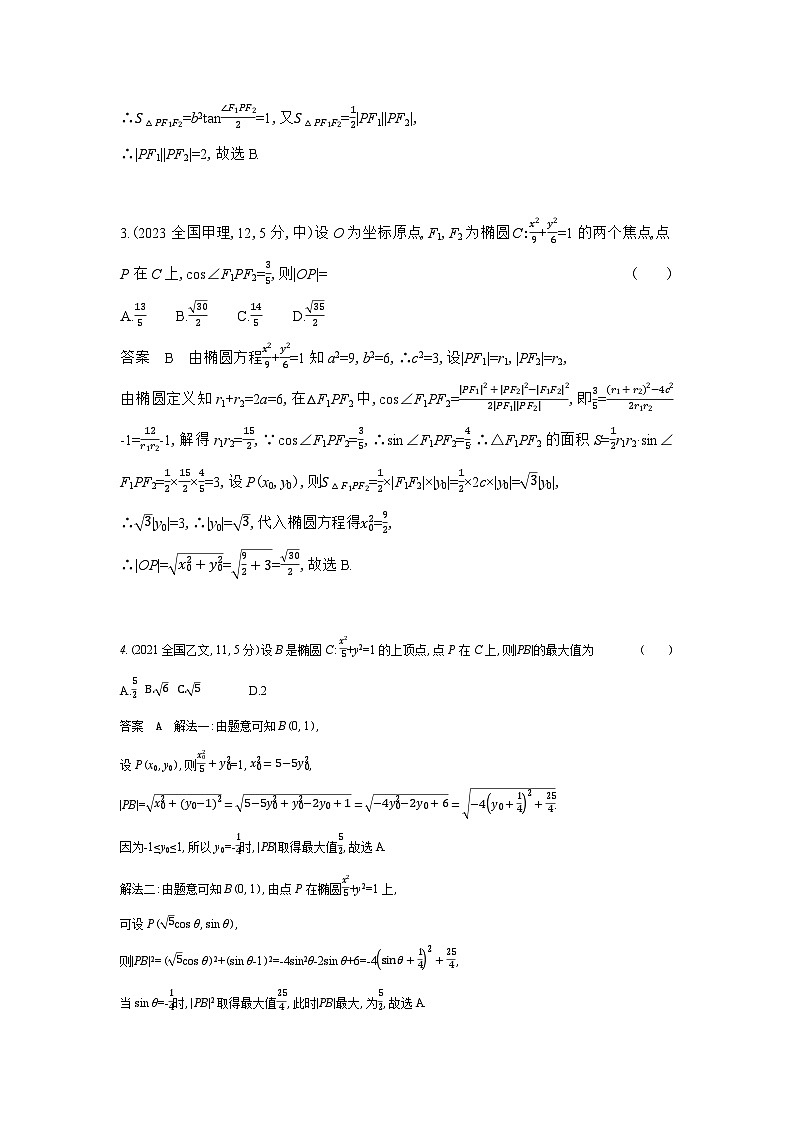 ∴S△PF₁F₂=b²tan(∠F₁PF₂/2)=1,又S△PF₁F₂=1/2|PF₁||PF₂|,
∴|PF₁||PF₂|=2,故选B.
3.(2023全国甲理,12,5分,中)设O为坐标原点,F₁,F₂为椭圆C:x²/9+y²/6=1的两个焦点,点
P在C上,cos∠F₁PF₂=3/5,则|OP|= ( )
A.13/5 B.√30/2 C.14/5 D.√35/2
答案 B 由椭圆方程x²/9+y²/6=1知a²=9,b²=6,∴c²=3,设|PF₁|=r₁,|PF₂|=r₂,
由椭圆定义知r₁+r₂=2a=6,在△F₁PF₂中,cos∠F₁PF₂=(|PF₁|²+|PF₂|²−|F₁F₂|²)/(2|PF₁||PF₂|),即3/5=((r₁+r₂)²−4c²)/(2r₁r₂)
-1=12/(r₁r₂)-1,解得r₁r₂=15/2,∵cos∠F₁PF₂=3/5,∴sin∠F₁PF₂=4/5 ∴△F₁PF₂的面积S=1/2r₁r₂·sin∠
F₁PF₂=1/2×15/2×4/5=3,设P(x₀,y₀),则S△F₁PF₂=1/2×|F₁F₂|×|y₀|=1/2×2c×|y₀|=√3|y₀|,
∴√3|y₀|=3,∴|y₀|=√3,代入椭圆方程得x₀²=9/2,
∴|OP|=√(x₀²+y₀²)=√(9/2+3)=√30/2,故选B.
4.(2021全国乙文,11,5分)设B是椭圆C:x²/5+y²=1的上顶点,点P在C上,则|PB|的最大值为 ( )
A.5/2 B.√6 C.√5 D.2
答案 A 解法一:由题意可知B(0,1),
设P(x₀,y₀),则x₀²/5+y₀²=1,x₀²=5−5y₀²,
|PB|=√(x₀²+(y₀−1)²)=√(5−5y₀²+y₀²−2y₀+1)=√(−4y₀²−2y₀+6)=√(−4(y₀+1/4)²+25/4).
因为-1≤y₀≤1,所以y₀=-1/4时,|PB|取得最大值5/2,故选A.
解法二:由题意可知B(0,1),由点P在椭圆x²/5+y²=1上,
可设P(√5cos θ,sin θ),
则|PB|²=(√5cos θ)²+(sin θ-1)²=-4sin²θ-2sin θ+6=-4(sinθ+1/4)²+25/4,
当sin θ=-1/4时,|PB|²取得最大值25/4,此时|PB|最大,为5/2,故选A.